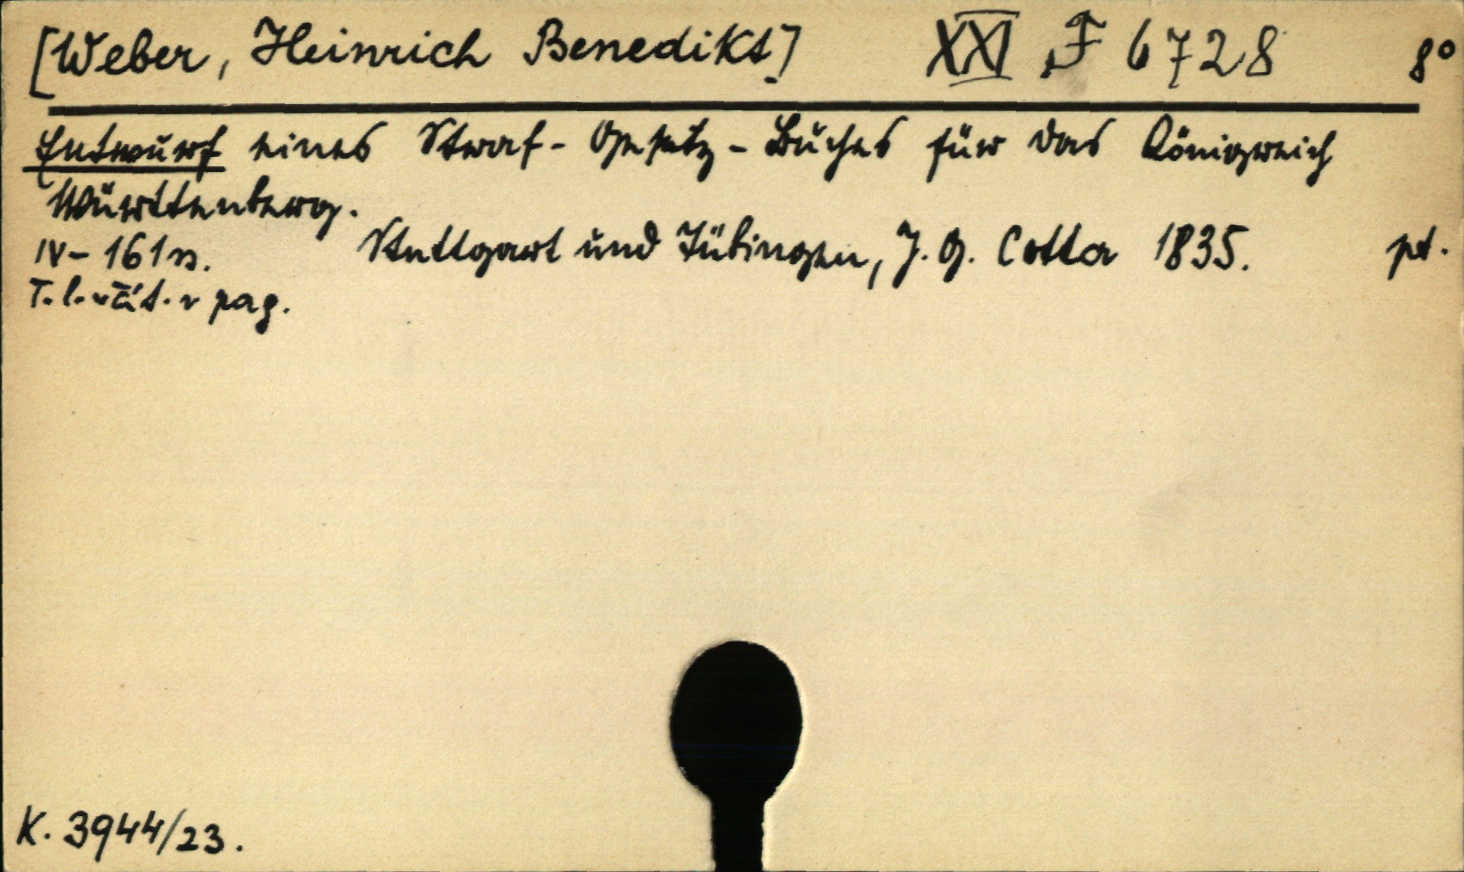 [Weber, Heinrich Benedikt] XXI F 6728 8°
Entwurf eines Straf-Gesetz-Buches für das Königreich
Württenberg.
IV-161 s. Stuttgart und Tübingen, J. G. Cotta 1835. pt.
T. l. v čít. v pag.
K. 3944/23.